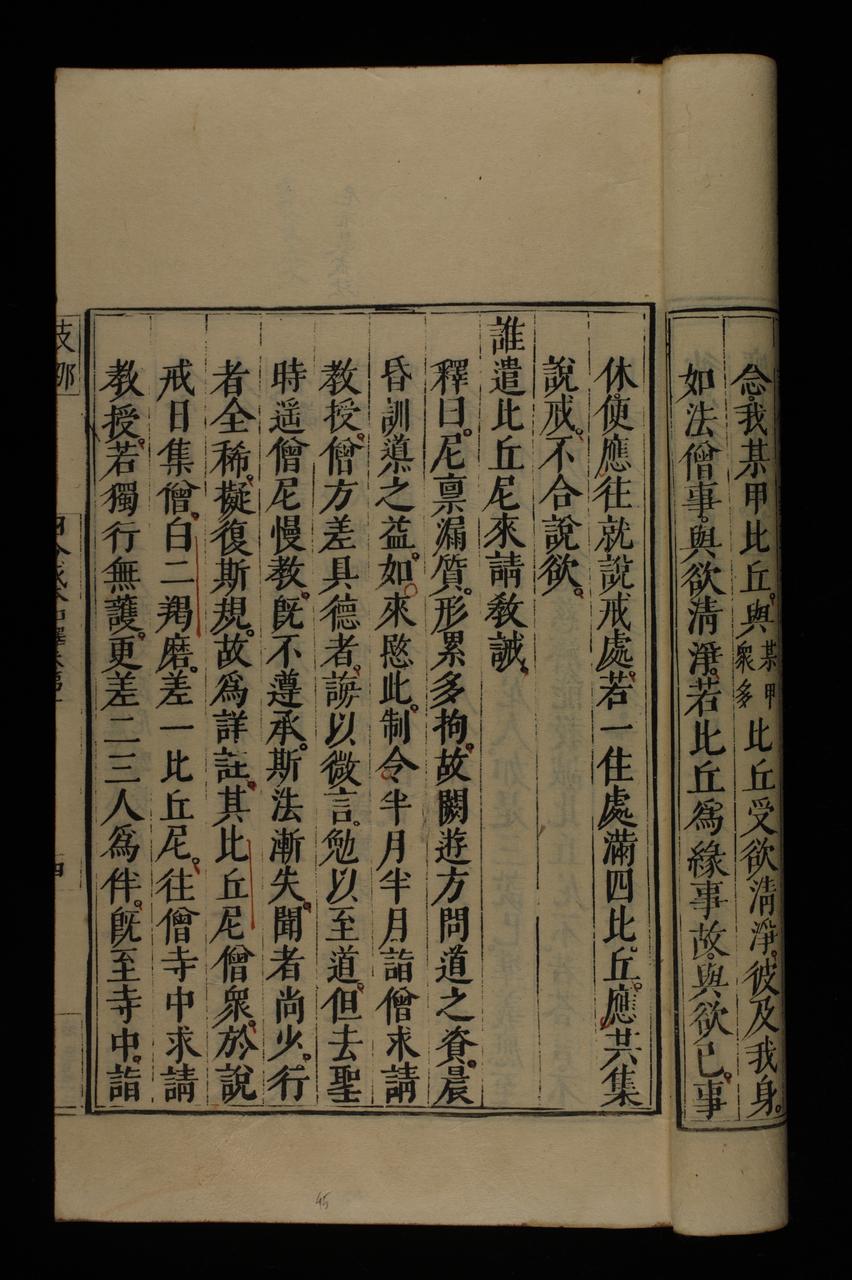 念。我某甲比丘。與某甲衆多比丘受欲清淨。彼及我身。
如法僧事。與欲清淨。若比丘爲緣事故。與欲已。事
休使應往就說戒處。若一住處滿四比丘。應共集
說戒。不合說欲。
誰遣比丘尼來請教誡。
釋曰。尼禀漏質。形累多拘。故闕遊方問道之資。晨
昏訓導之益。如來愍此。制令半月半月詣僧求請
教授。僧方差具德者。誨以微言。勉以至道。但去聖
時遥。僧尼慢教。旣不遵承。斯法漸失。聞者尚少。行
者全稀。擬復斯規。故爲詳註。其比丘尼僧衆。於說
戒日集僧。白二羯磨。差一比丘尼。往僧寺中求請
教授。若獨行無護。更差二三人爲伴。旣至寺中。詣
支那
四
45